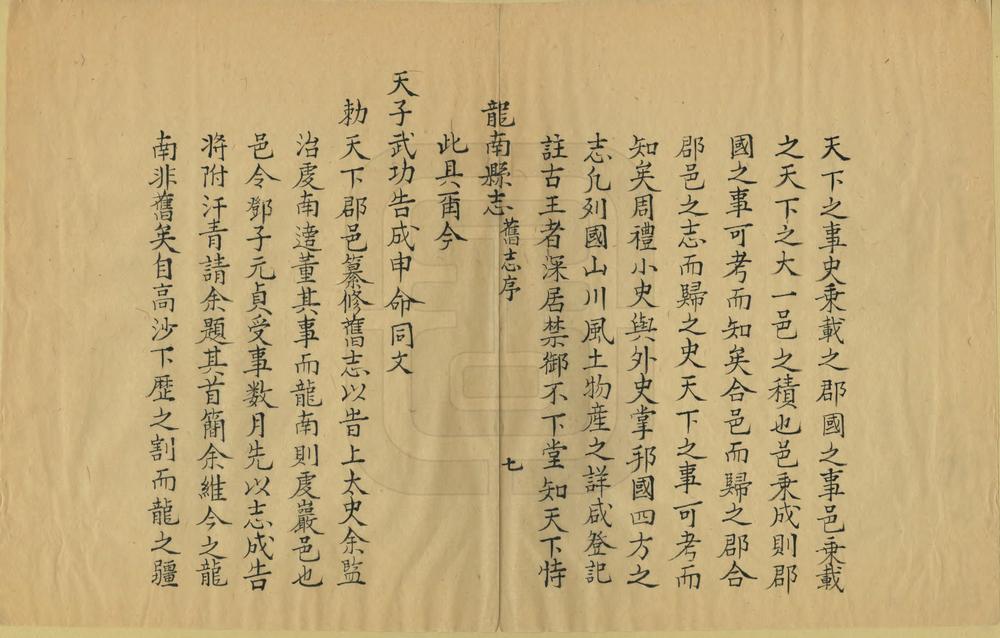 天下之事史乗載之郡國之事邑乗載
之天下之大一邑之積也邑乗成則郡
國之事可考而知矣合邑而歸之郡合
郡邑之志而歸之史天下之事可考而
知矣周禮小史與外史掌邦國四方之
志凡列國山川風土物産之詳咸登記
註古王者深居禁御不下堂知天下恃
龍南縣志 舊志序 七
此具爾今
天子武功告成申命同文
勅天下郡邑纂修舊志以告上太史余監
治虔南逵董其事而龍南則虔巖邑也
邑令鄧子元貞受事数月先以志成告
将附汗青請余題其首簡余維今之龍
南非舊矣自高沙下歷之割而龍之疆